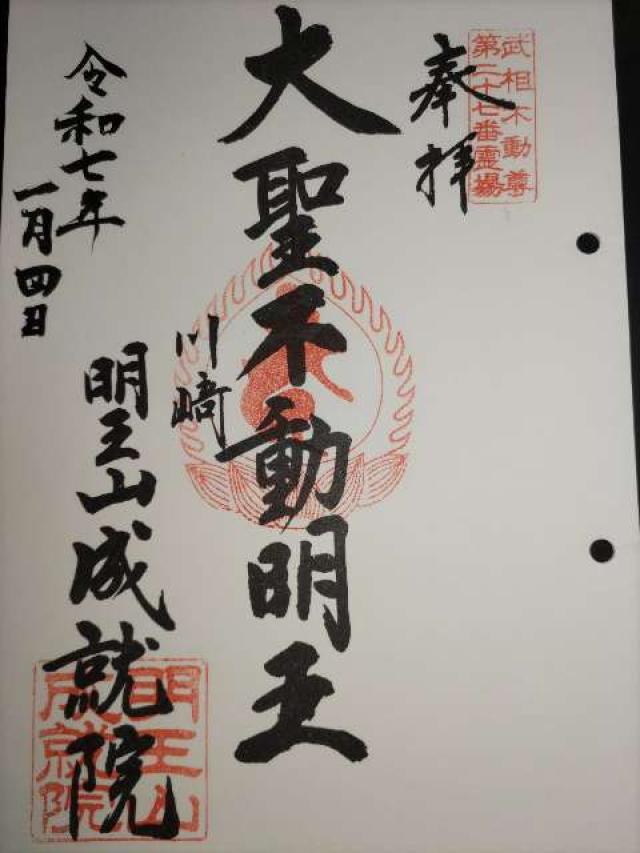 武相不動尊
第二十七番霊場
奉拝
大聖不動明王
川崎
明王山成就院
令和七年
一月四日
明王山
成就院